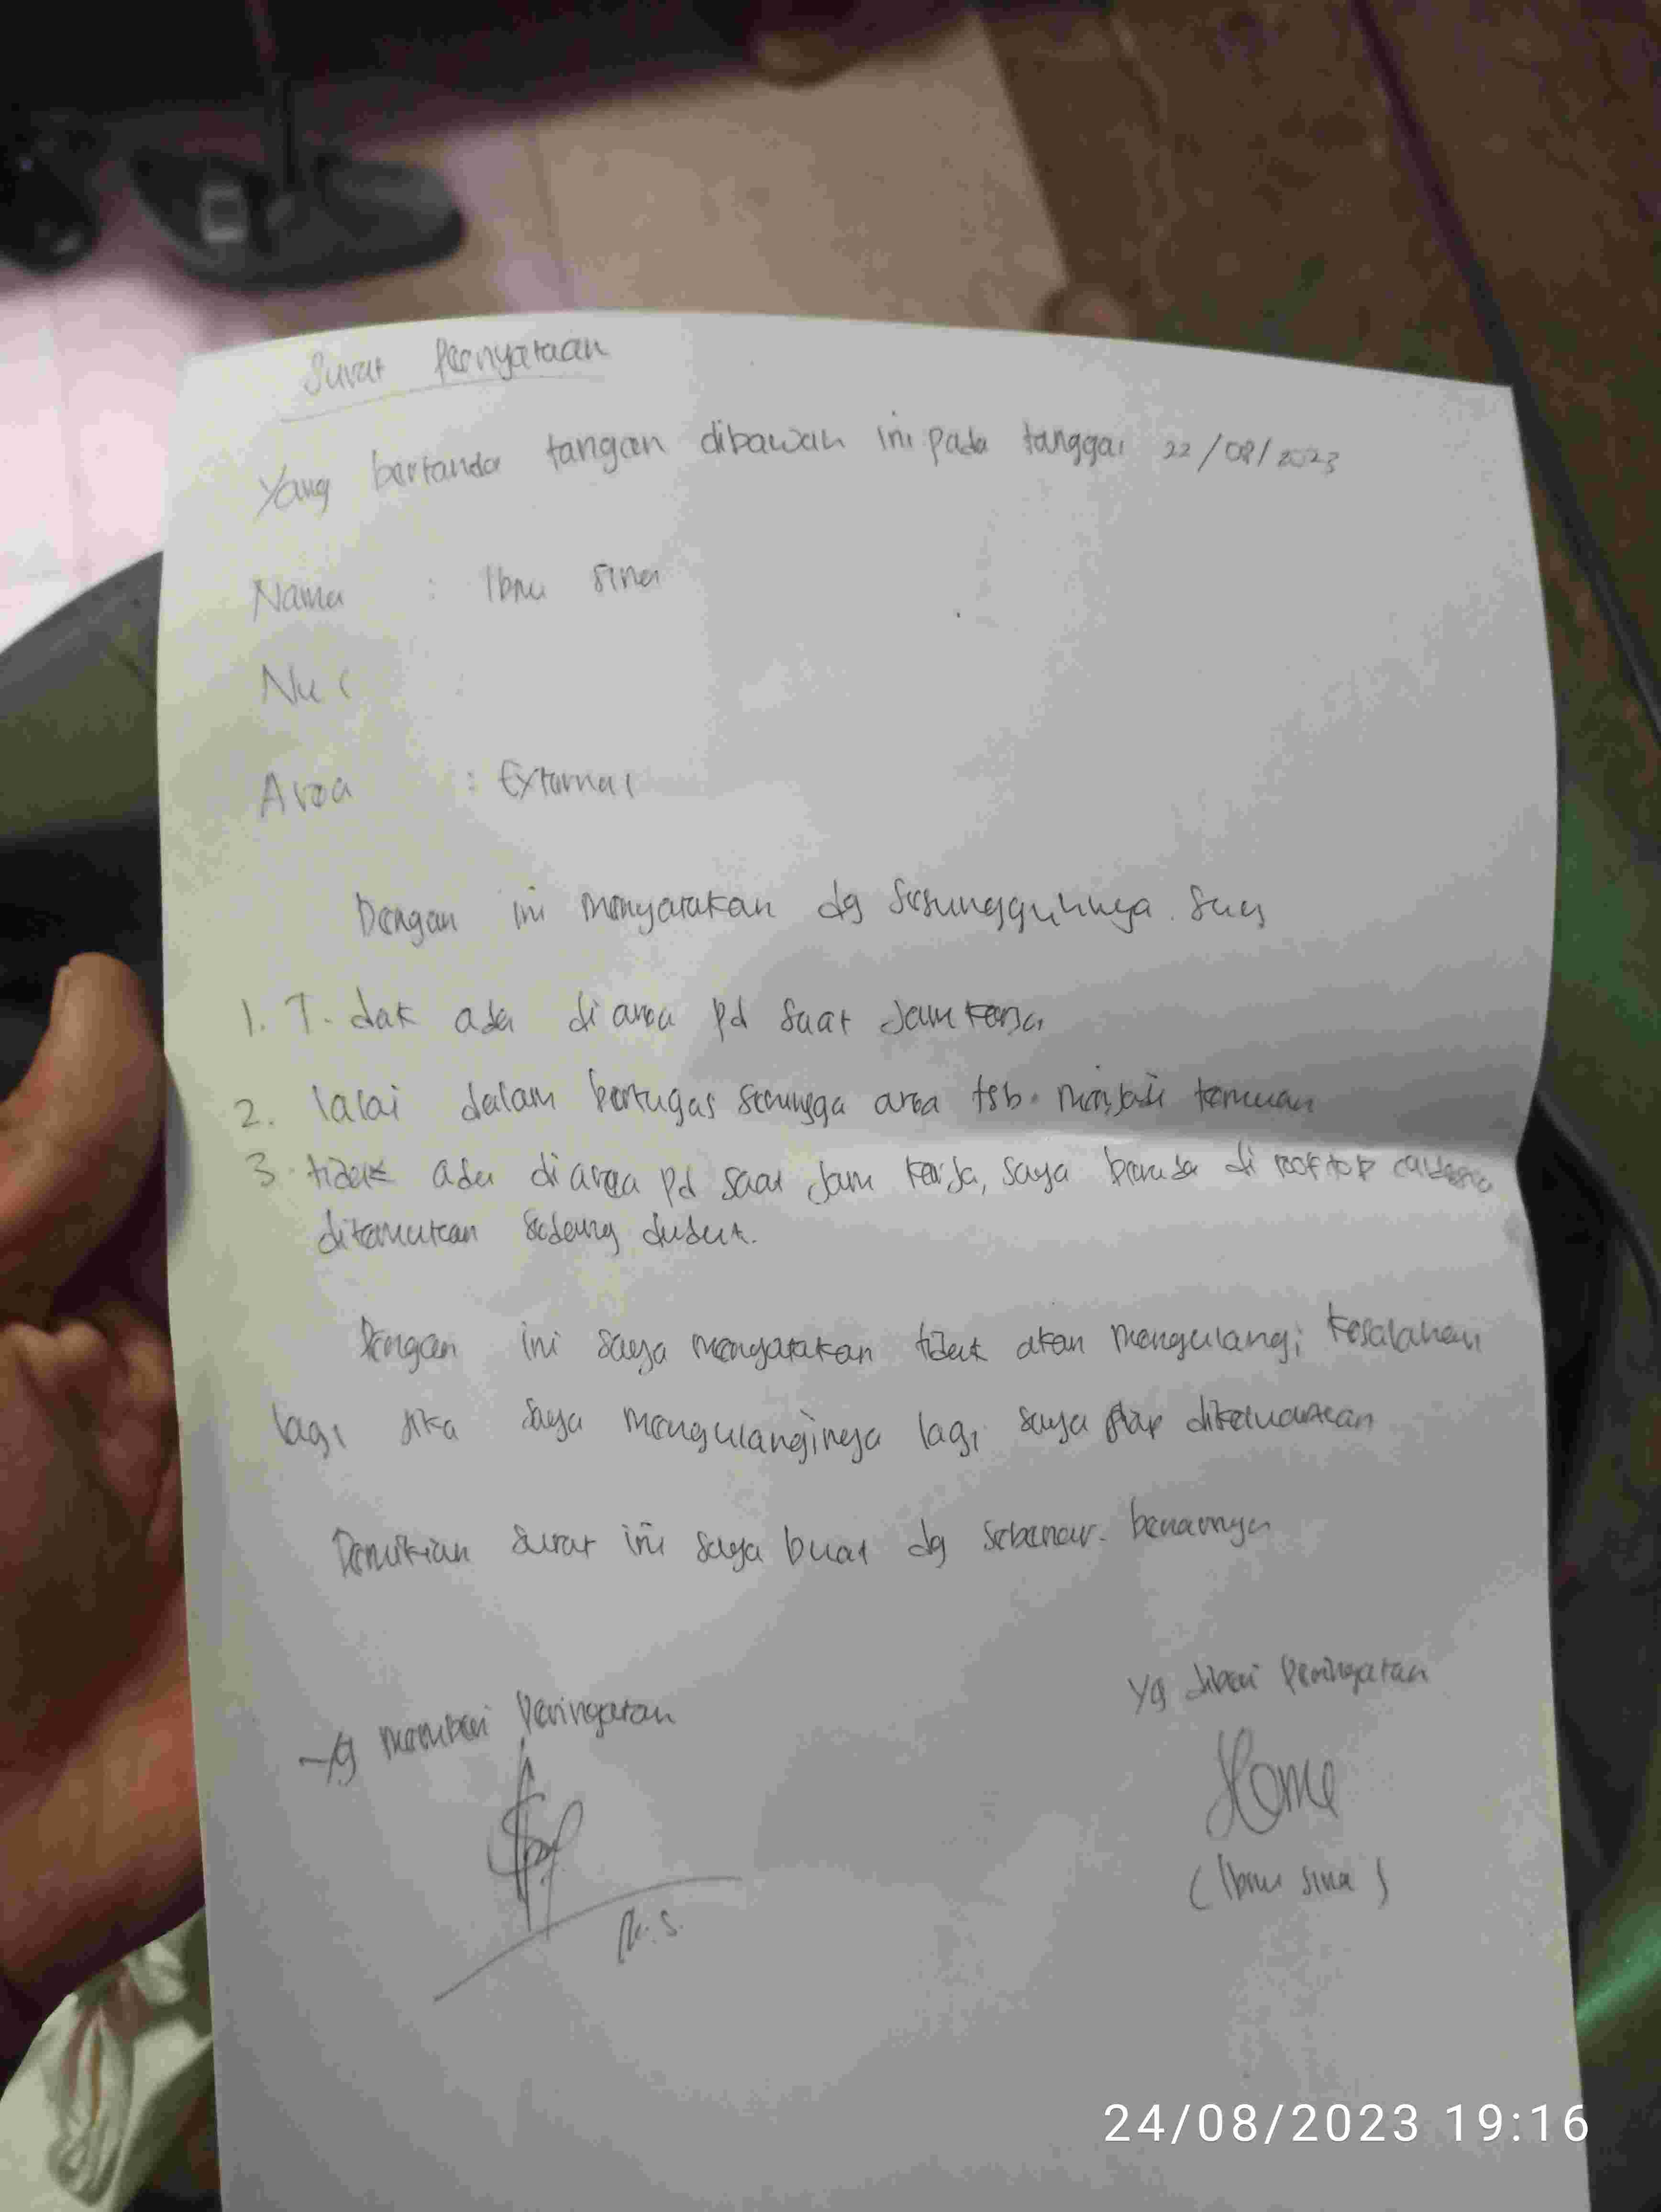 Surat Pernyataan
Yang bertanda tangan dibawah ini pada tanggal 22/08/2023
Nama : Ibnu Sina
Area : External
Dengan ini menyatakan dg Sesungguhnya. Saya
1. Tidak ada di area pd saat Jam kerja
2. lalai dalam bertugas sehingga area tsb. menjadi temuan
3. tidak ada di area pd saat Jam kerja, saya berada di rooftop
ditemukan sedang duduk.
Dengan ini saya menyatakan tidak akan mengulangi kesalahan
lagi jika saya mengulanginya lagi saya siap dikeluarkan
Demikian surat ini saya buat dg sebenar-benarnya
Yg memberi Peringatan
Yg diberi Peringatan
(Ibnu Sina)
24/08/2023 19:16